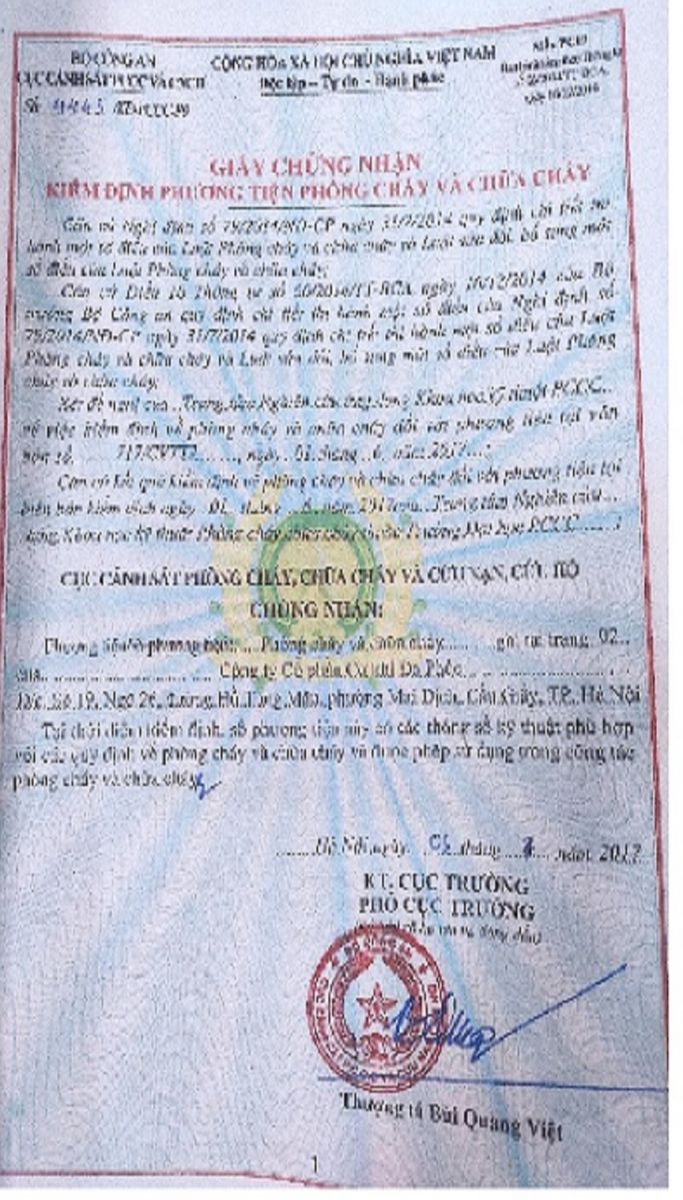 BỘ CÔNG AN
CỤC CẢNH SÁT PCCC VÀ CNCH
Số: 4445 /KĐ-PCCC
CỘNG HÒA XÃ HỘI CHỦ NGHĨA VIỆT NAM
Độc lập – Tự do – Hạnh phúc
GIẤY CHỨNG NHẬN
KIỂM ĐỊNH PHƯƠNG TIỆN PHÒNG CHÁY VÀ CHỮA CHÁY
Căn cứ Nghị định số 79/2014/NĐ-CP ngày 31/7/2014 quy định chi tiết thi
hành một số điều của Luật Phòng cháy và chữa cháy và Luật sửa đổi, bổ sung một
số điều của Luật Phòng cháy và chữa cháy;
Căn cứ Điều 18 Thông tư số 66/2014/TT-BCA ngày 16/12/2014 của Bộ
trưởng Bộ Công an quy định chi tiết thi hành một số điều của Nghị định số
79/2014/NĐ-CP ngày 31/7/2014 quy định chi tiết thi hành một số điều của Luật
Phòng cháy và chữa cháy và Luật sửa đổi, bổ sung một số điều của Luật Phòng
cháy và chữa cháy;
Xét đề nghị của ..Trung tâm Nghiên cứu ứng dụng Khoa học kỹ thuật PCCC..
về việc kiểm định về phòng cháy và chữa cháy đối với phương tiện tại văn
bản số. 717/CVTT2......., ngày.. 01.tháng ..6.. năm.2017...;
Căn cứ kết quả kiểm định về phòng cháy và chữa cháy đối với phương tiện tại
biên bản kiểm định ngày ..01.. tháng ...6.. năm.2017của...Trung tâm Nghiên cứu...
dụng Khoa học kỹ thuật Phòng cháy chữa cháy Trường Đại học PCCC.......;
CỤC CẢNH SÁT PHÒNG CHÁY, CHỮA CHÁY VÀ CỨU NẠN, CỨU HỘ
CHỨNG NHẬN:
Phương tiện/lô phương tiện:... Phòng cháy và chữa cháy....... ghi tại trang ..02..
của............................. Công ty Cổ phần Cơ khí Đa Phúc.............................
Số 19, Ngõ 26, đường Hồ Tùng Mậu, phường Mai Dịch, Cầu Giấy, TP. Hà Nội
Tại thời điểm kiểm định, số phương tiện này có các thông số kỹ thuật phù hợp
với các quy định về phòng cháy và chữa cháy và được phép sử dụng trong công tác
phòng cháy và chữa cháy
........Hà Nội,ngày.. tháng ...7... năm 2017
KT. CỤC TRƯỞNG
PHÓ CỤC TRƯỞNG
Thượng tá Bùi Quang Việt
1